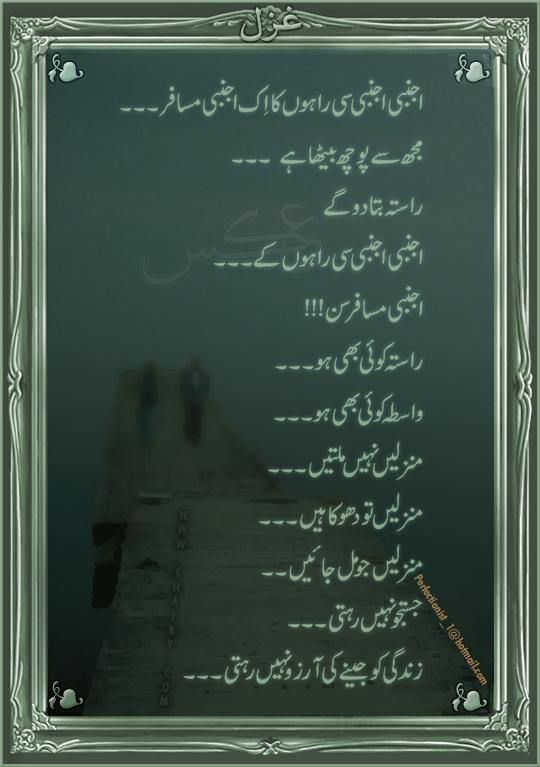 غزل
اجنبی اجنبی سی راہوں کا اِک اجنبی مسافر ۔۔۔
مجھ سے پوچھ بیٹھا ہے ۔۔۔
راستہ بتا دو گے
اجنبی اجنبی سی راہوں کے ۔۔۔
اجنبی مسافر سن !!!
راستہ کوئی بھی ہو ۔۔۔
واسطہ کوئی بھی ہو ۔۔۔
منزلیں نہیں ملتیں ۔۔۔
منزلیں تو دھوکا ہیں ۔۔۔
منزلیں جو مل جائیں ۔۔
جستجو نہیں رہتی ۔۔۔
زندگی کو جینے کی آرزو نہیں رہتی ۔۔۔
عکس
WWW SHAIRY COM
Perfectionist_1@hotmail.com